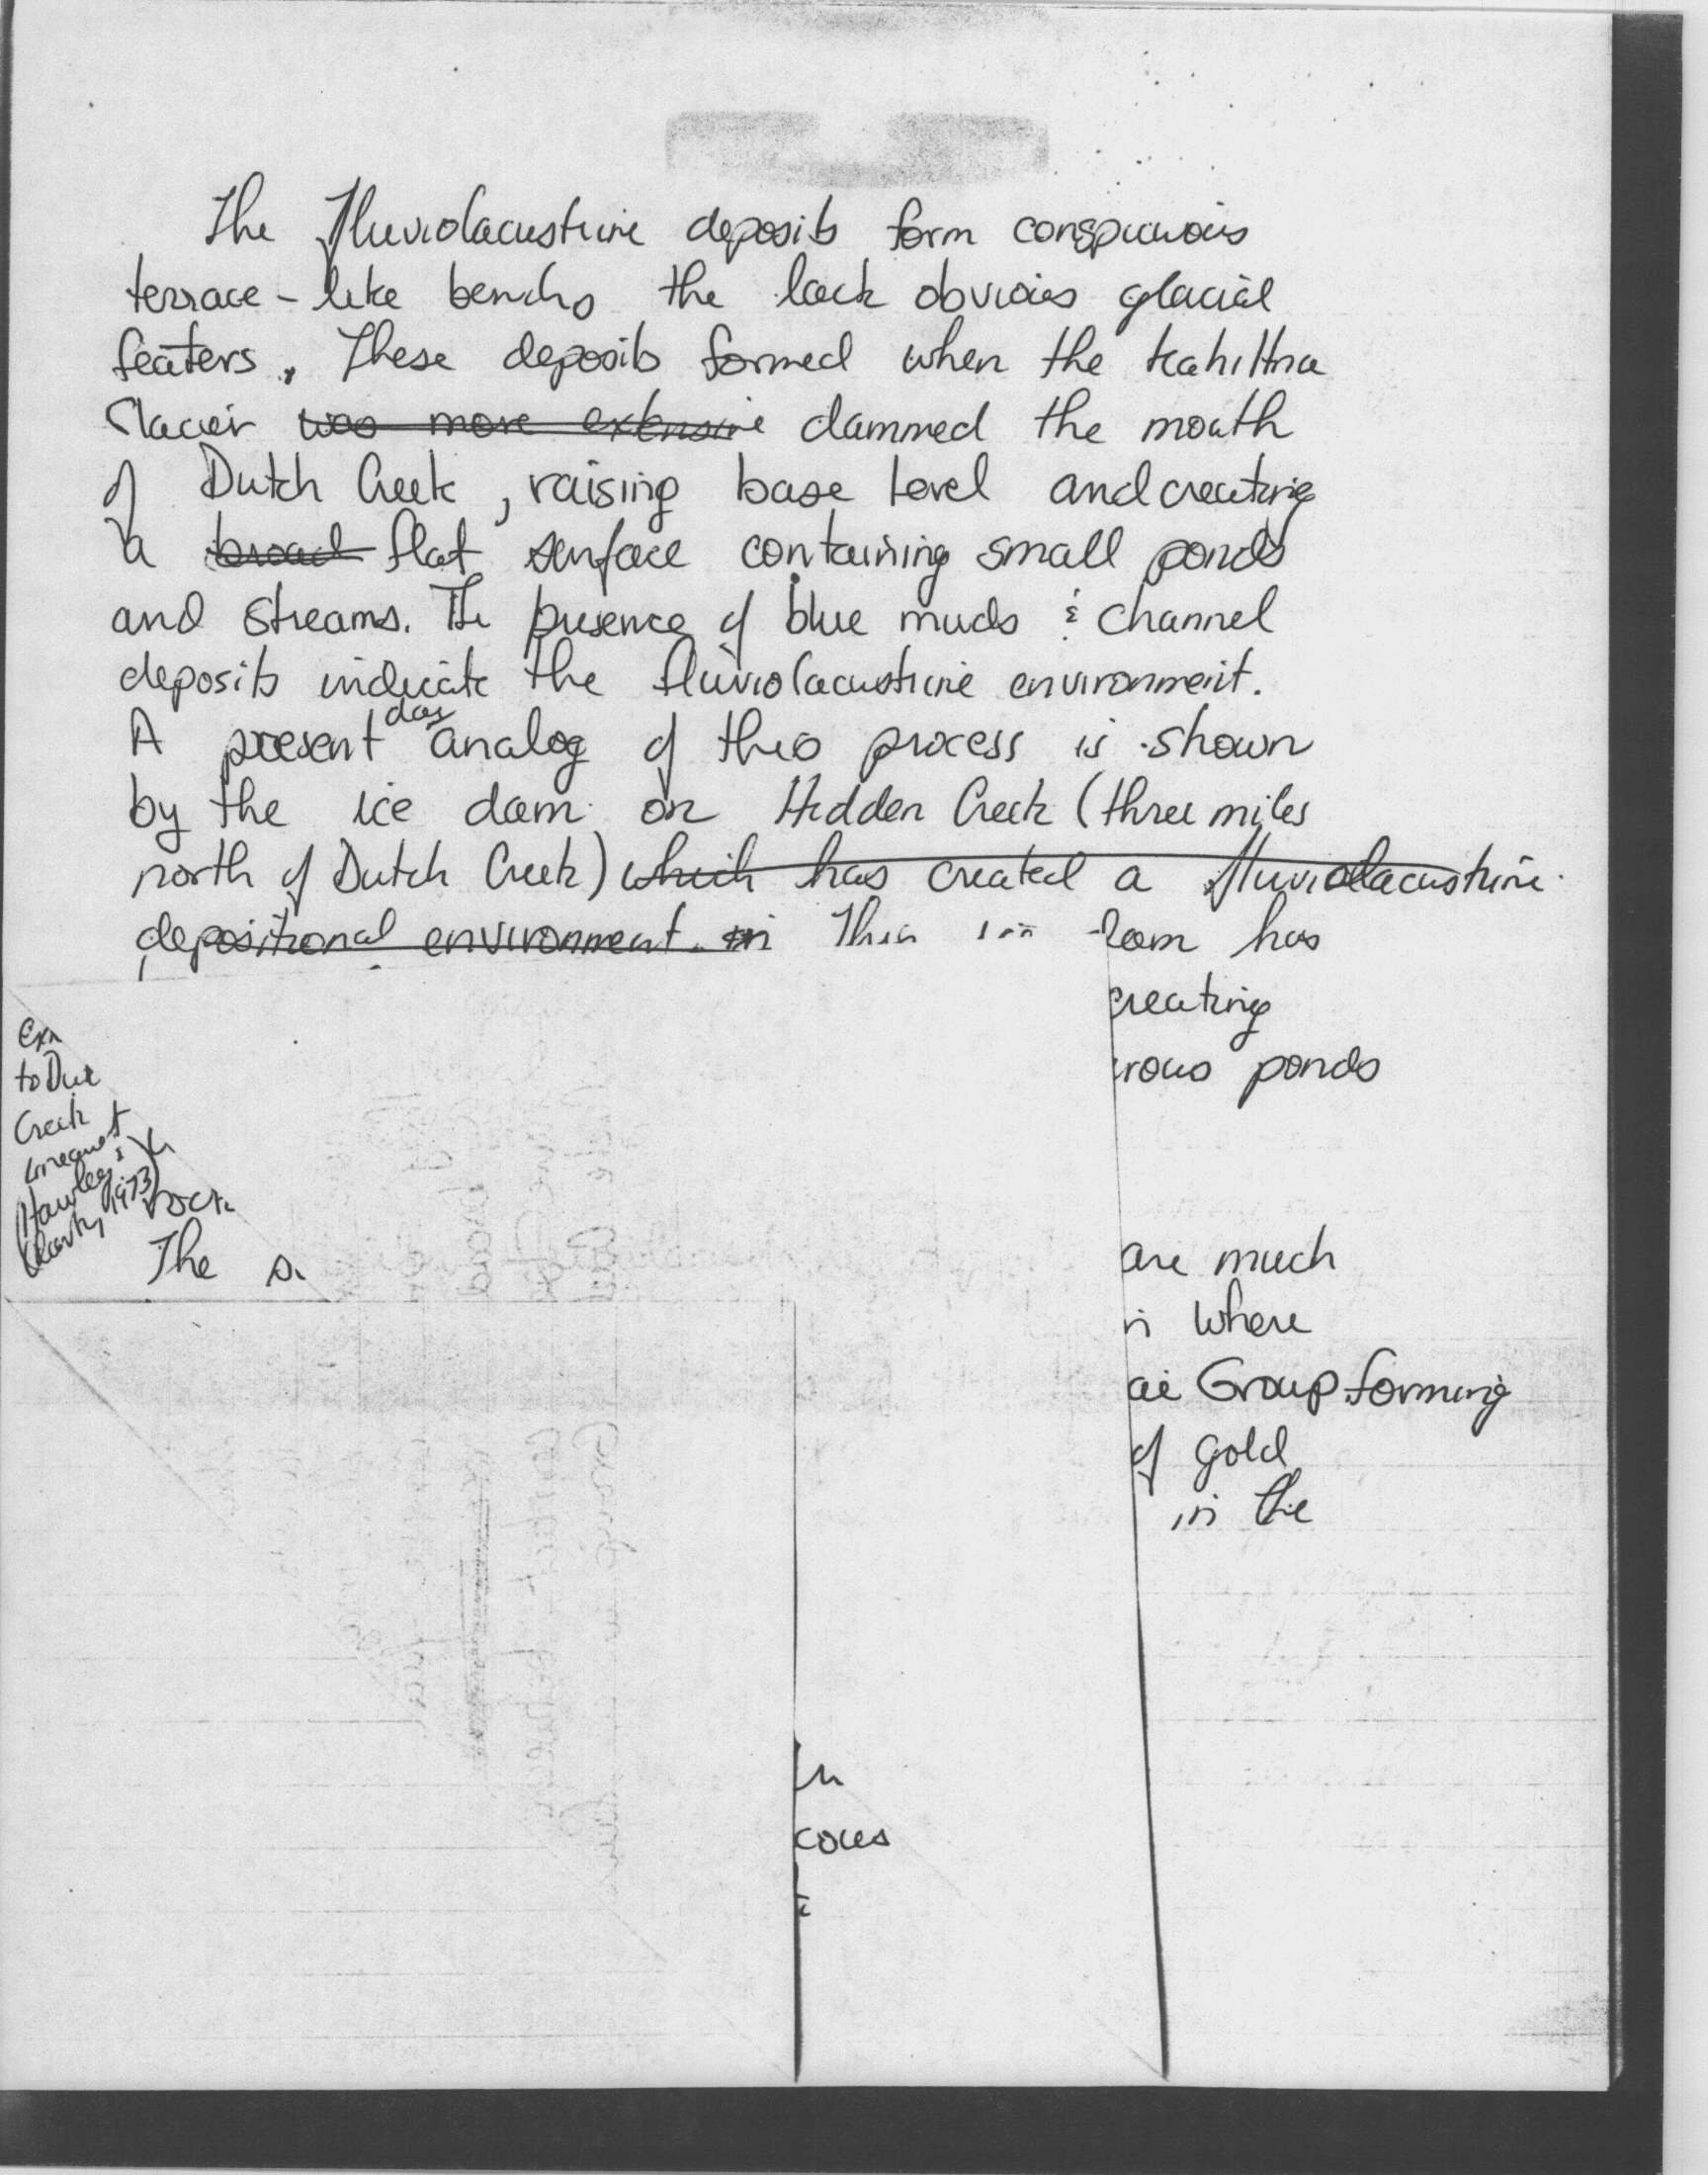 The fluviolacustrine deposits form conspicuous
terrace-like benches the lack obvious glacial
featers. These deposits formed when the Kahiltna
Glacier was more extensive dammed the mouth
of Dutch Creek, raising base level and creating
a broad flat surface containing small ponds
and streams. The presence of blue muds & channel
deposits indicate the fluviolacustrine environment.
A present day analog of this process is shown
by the ice dam on Hidden Creek (three miles
north of Dutch Creek) which has created a fluviolacustrine
depositional environment. in This dam has
creating
rous ponds
to Dut
Creek
(Hawley &
1973)
rock
The
are much
where
Group forming
of gold
in the
cous